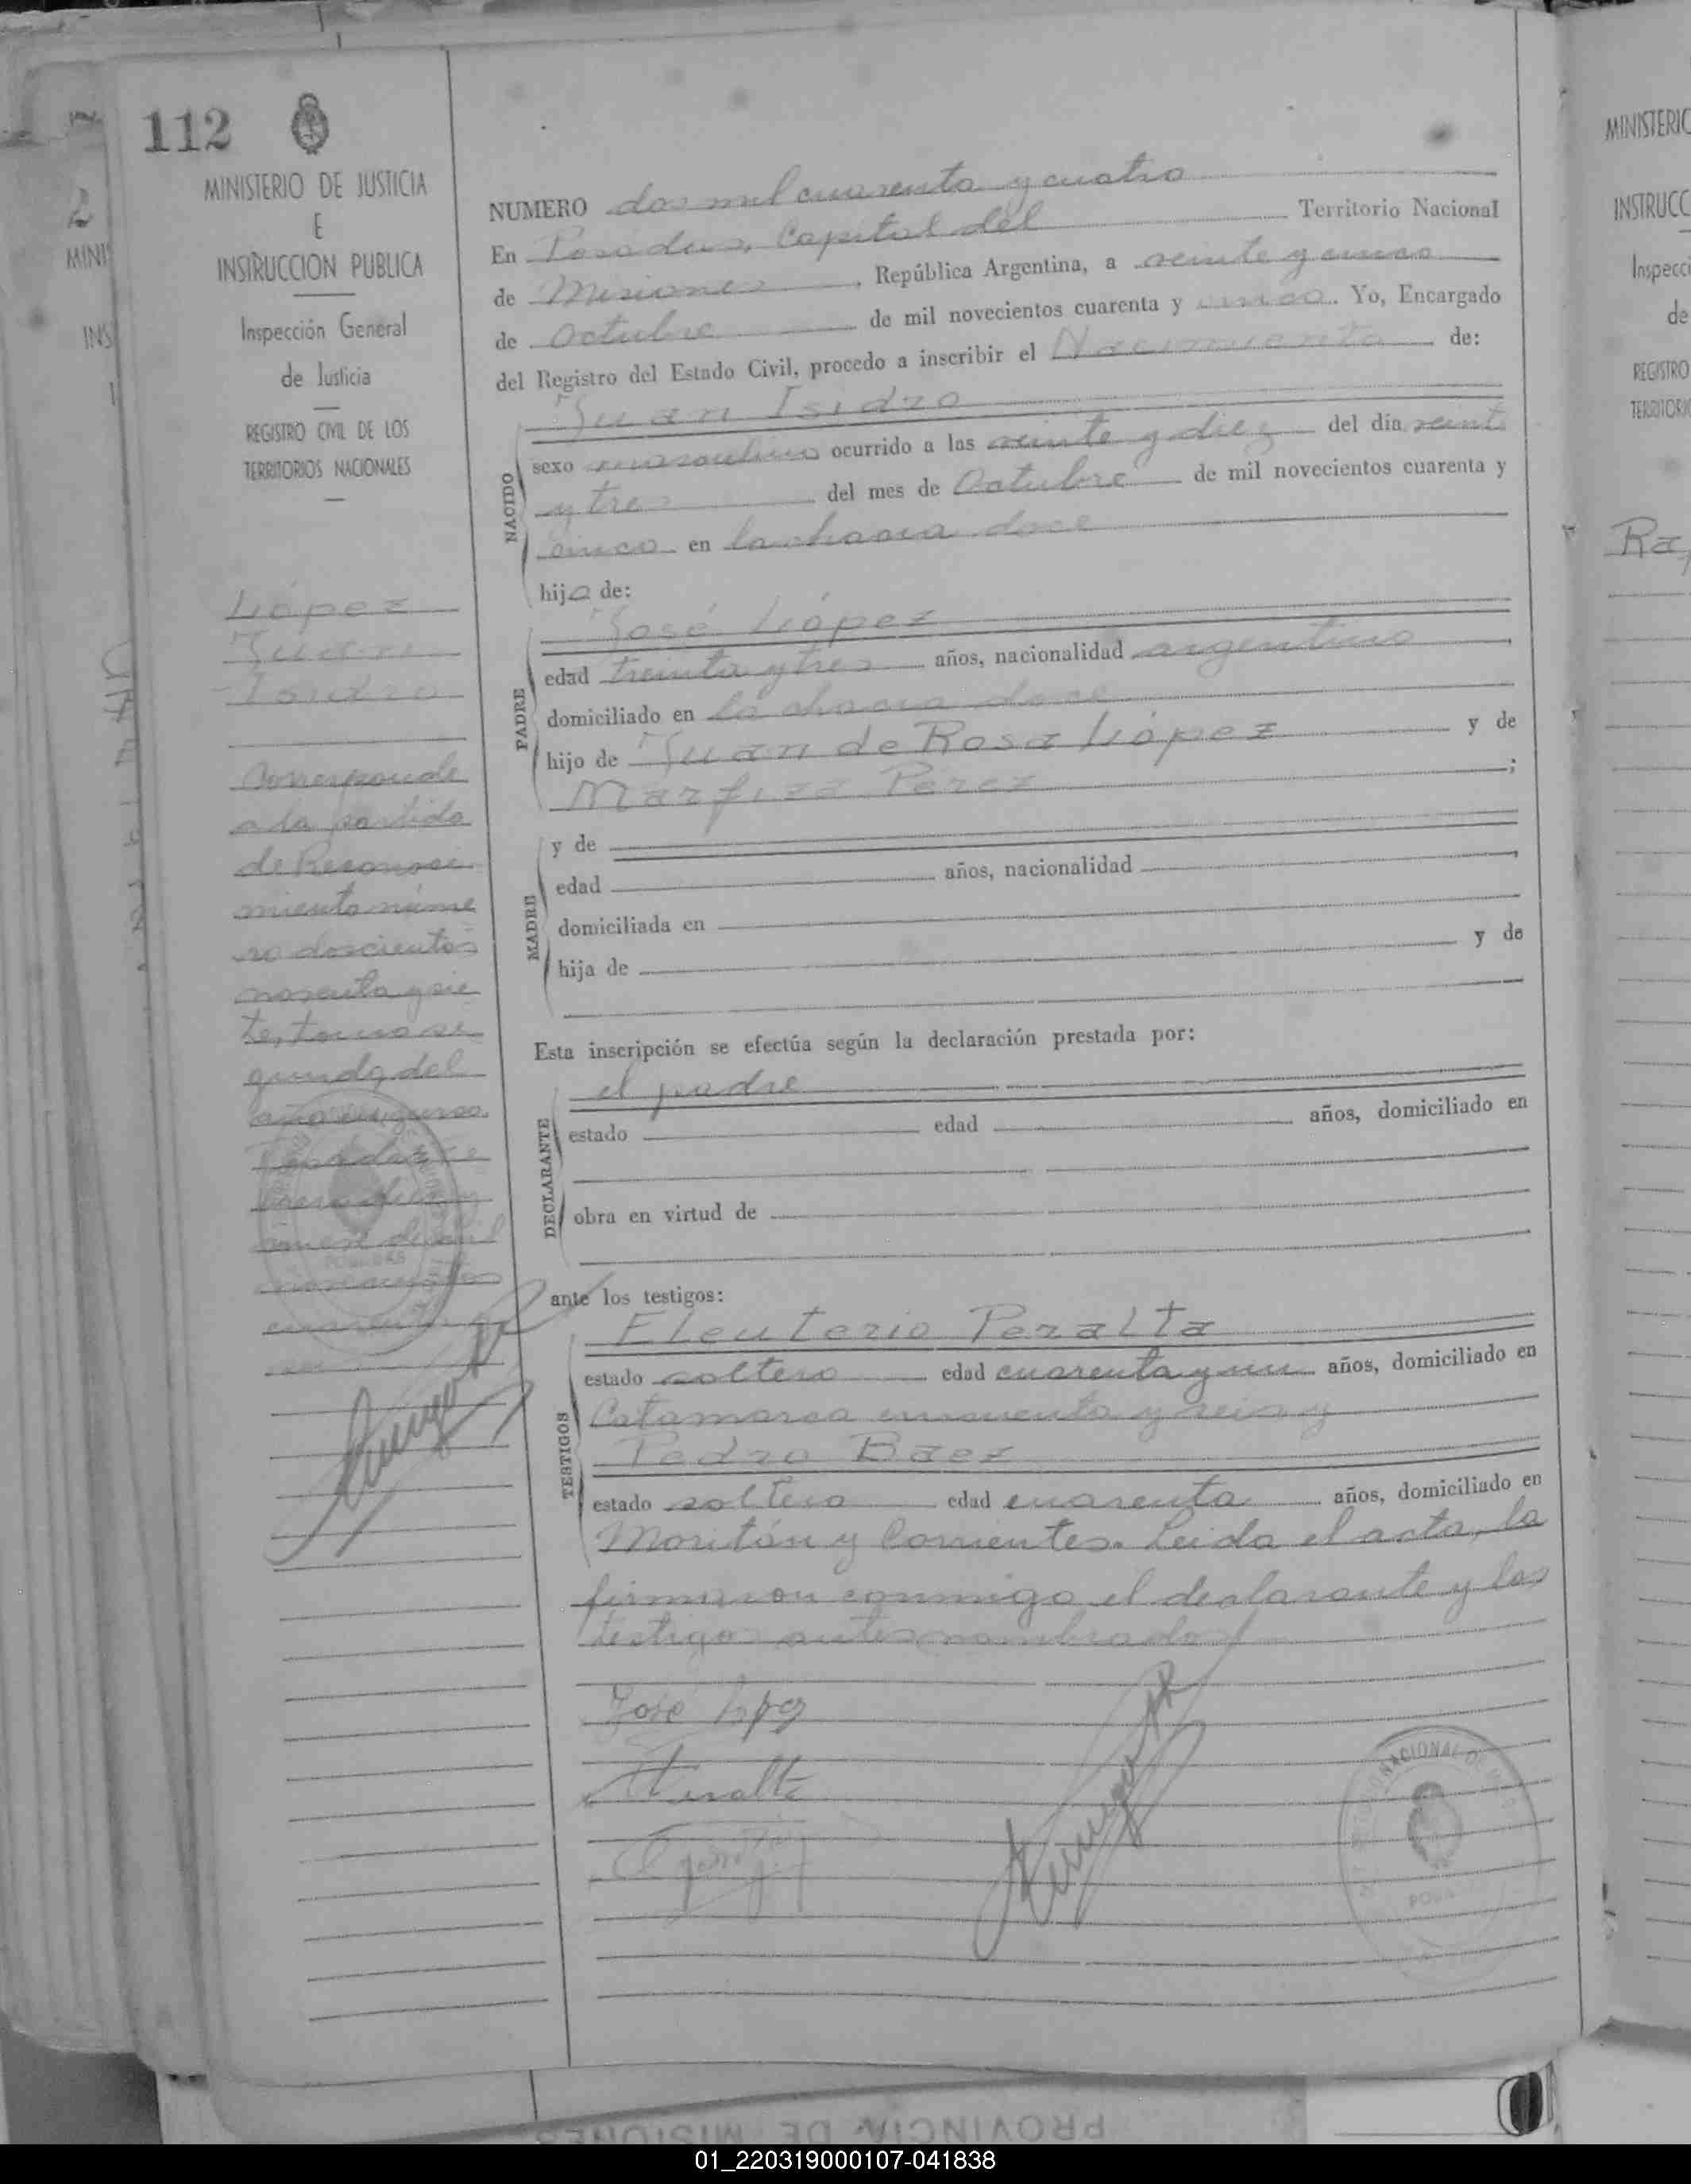 112
MINISTERIO DE JUSTICIA
E
INSTRUCCION PUBLICA
Inspección General
de Justicia
REGISTRO CIVIL DE LOS
TERRITORIOS NACIONALES
López
Juan
Isidro
Corresponde
a la partida
de Reconoci
miento núme
ro doscientos
noventa y sie
te, tomo se
gundo del
año en curso.
NUMERO dos mil cuarenta y cuatro
En Posadas, Capital del Territorio Nacional
de Misiones, República Argentina, a veinte y cinco
de Octubre de mil novecientos cuarenta y cinco. Yo, Encargado
del Registro del Estado Civil, procedo a inscribir el Nacimiento de:
NACIDO
Juan Isidro
sexo masculino ocurrido a las veinte y diez del día veinte
y tres del mes de Octubre de mil novecientos cuarenta y
cinco en la chacra doce
hijo de:
PADRE
José López
edad treinta y tres años, nacionalidad argentino,
domiciliado en la chacra doce
hijo de Juan de Rosa López y de
Marfiza Perez;
MADRE
y de
edad años, nacionalidad,
domiciliada en
hija de y de
Esta inscripción se efectúa según la declaración prestada por:
DECLARANTE
el padre
estado edad años, domiciliado en
obra en virtud de
ante los testigos:
TESTIGOS
Eleuterio Peralta
estado soltero edad cuarenta y un años, domiciliado en
Catamarca cincuenta y seis y
Pedro Baez
estado soltero edad cuarenta años, domiciliado en
Moritán y Corrientes. Leida el acta, la
firmaron conmigo el declarante y los
testigos antes nombrados
José López
Peralta
MINISTERIO
INSTRUCC
Inspecci
de
REGISTRO
TERRITORIO
PROVINCIA DE MISIONES
01_220319000107-041838